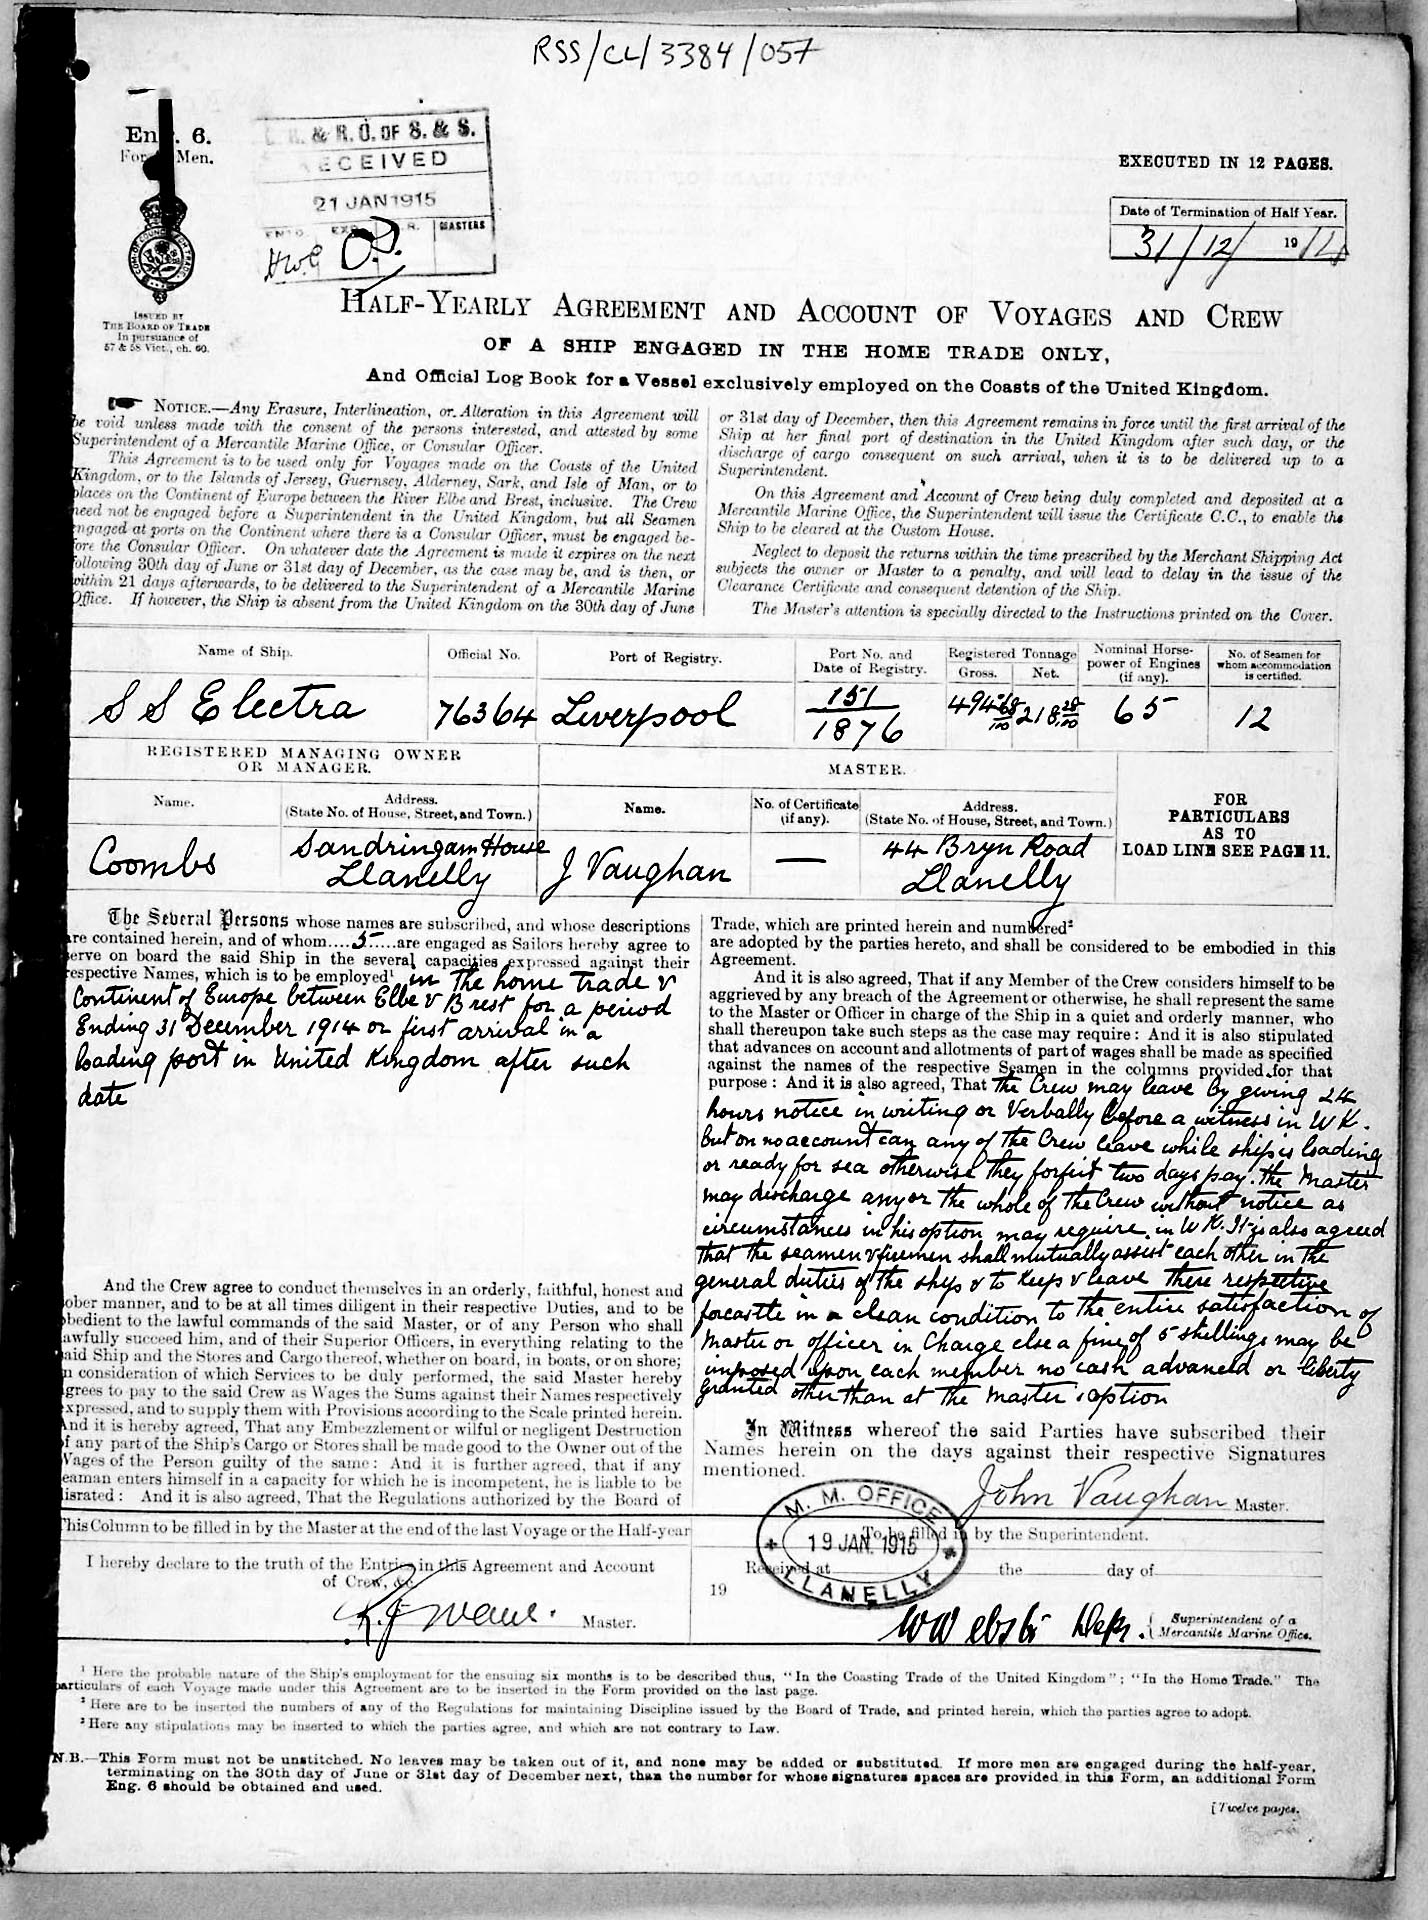 RSS/CL/3384/057
Eng. 6.
For Men.
& R. O. OF S. & S.
RECEIVED
21 JAN 1915
MASTERS
EXECUTED IN 12 PAGES.
Date of Termination of Half Year.
31/12/ 1914
ISSUED BY
THE BOARD OF TRADE
In pursuance of
57 & 58 Vict., ch. 60.
HALF-YEARLY AGREEMENT AND ACCOUNT OF VOYAGES AND CREW
OF A SHIP ENGAGED IN THE HOME TRADE ONLY,
And Official Log Book for a Vessel exclusively employed on the Coasts of the United Kingdom.
NOTICE.—Any Erasure, Interlineation, or Alteration in this Agreement will
be void unless made with the consent of the persons interested, and attested by some
Superintendent of a Mercantile Marine Office, or Consular Officer.
This Agreement is to be used only for Voyages made on the Coasts of the United
Kingdom, or to the Islands of Jersey, Guernsey, Alderney, Sark, and Isle of Man, or to
places on the Continent of Europe between the River Elbe and Brest, inclusive. The Crew
need not be engaged before a Superintendent in the United Kingdom, but all Seamen
engaged at ports on the Continent where there is a Consular Officer, must be engaged be-
fore the Consular Officer. On whatever date the Agreement is made it expires on the next
following 30th day of June or 31st day of December, as the case may be, and is then, or
within 21 days afterwards, to be delivered to the Superintendent of a Mercantile Marine
Office. If however, the Ship is absent from the United Kingdom on the 30th day of June
or 31st day of December, then this Agreement remains in force until the first arrival of the
Ship at her final port of destination in the United Kingdom after such day, or the
discharge of cargo consequent on such arrival, when it is to be delivered up to a
Superintendent.
On this Agreement and Account of Crew being duly completed and deposited at a
Mercantile Marine Office, the Superintendent will issue the Certificate C.C., to enable the
Ship to be cleared at the Custom House.
Neglect to deposit the returns within the time prescribed by the Merchant Shipping Act
subjects the owner or Master to a penalty, and will lead to delay in the issue of the
Clearance Certificate and consequent detention of the Ship.
The Master's attention is specially directed to the Instructions printed on the Cover.
Name of Ship.
Official No.
Port of Registry.
Port No. and
Date of Registry.
Registered Tonnage
Gross. Net.
Nominal Horse-
power of Engines
(if any).
No. of Seamen for
whom accommodation
is certified.
S S Electra
76364
Liverpool
151
1876
494 68/100
218 28/100
65
12
REGISTERED MANAGING OWNER
OR MANAGER.
MASTER.
Name.
Address.
(State No. of House, Street, and Town.)
Name.
No. of Certificate
(if any).
Address.
(State No. of House, Street, and Town.)
FOR
PARTICULARS
AS TO
LOAD LINE SEE PAGE 11.
Coombs
Sandringam House
Llanelly
J Vaughan
—
44 Bryn Road
Llanelly
The Several Persons whose names are subscribed, and whose descriptions
are contained herein, and of whom....5.....are engaged as Sailors hereby agree to
serve on board the said Ship in the several capacities expressed against their
respective Names, which is to be employed¹ in the home trade &
Continent of Europe between Elbe & Brest for a period
Ending 31 December 1914 or first arrival in a
loading port in United Kingdom after such
date
And the Crew agree to conduct themselves in an orderly, faithful, honest and
sober manner, and to be at all times diligent in their respective Duties, and to be
obedient to the lawful commands of the said Master, or of any Person who shall
lawfully succeed him, and of their Superior Officers, in everything relating to the
said Ship and the Stores and Cargo thereof, whether on board, in boats, or on shore;
in consideration of which Services to be duly performed, the said Master hereby
agrees to pay to the said Crew as Wages the Sums against their Names respectively
expressed, and to supply them with Provisions according to the Scale printed herein.
And it is hereby agreed, That any Embezzlement or wilful or negligent Destruction
of any part of the Ship's Cargo or Stores shall be made good to the Owner out of the
Wages of the Person guilty of the same: And it is further agreed, that if any
Seaman enters himself in a capacity for which he is incompetent, he is liable to be
disrated: And it is also agreed, That the Regulations authorized by the Board of
Trade, which are printed herein and numbered²
are adopted by the parties hereto, and shall be considered to be embodied in this
Agreement.
And it is also agreed, That if any Member of the Crew considers himself to be
aggrieved by any breach of the Agreement or otherwise, he shall represent the same
to the Master or Officer in charge of the Ship in a quiet and orderly manner, who
shall thereupon take such steps as the case may require: And it is also stipulated
that advances on account and allotments of part of wages shall be made as specified
against the names of the respective Seamen in the columns provided for that
purpose: And it is also agreed, That the Crew may leave by giving 24
hours notice in writing or Verbally before a witness in U K.
but on no account can any of the Crew leave while ship is loading
or ready for sea otherwise they forfeit two days pay. the Master
may discharge any or the whole of the Crew without notice as
circumstances in his option may require in U K. It is also agreed
that the seamen & firemen shall mutually assist each other in the
general duties of the ship & to keep & leave there respective
forcastle in a clean condition to the entire satisfaction of
Master or officer in Charge else a fine of 5 shillings may be
imposed upon each member no cash advanced or liberty
granted other than at the Master's option
In Witness whereof the said Parties have subscribed their
Names herein on the days against their respective Signatures
mentioned.
John Vaughan Master.
This Column to be filled in by the Master at the end of the last Voyage or the Half-year
I hereby declare to the truth of the Entries in this Agreement and Account
of Crew, &c.
Master.
To be filled in by the Superintendent.
Received at the day of
19
M. M. OFFICE
19 JAN. 1915
LLANELLY
Superintendent of a
Mercantile Marine Office.
¹ Here the probable nature of the Ship's employment for the ensuing six months is to be described thus, "In the Coasting Trade of the United Kingdom"; "In the Home Trade." The
particulars of each Voyage made under this Agreement are to be inserted in the Form provided on the last page.
² Here are to be inserted the numbers of any of the Regulations for maintaining Discipline issued by the Board of Trade, and printed herein, which the parties agree to adopt.
³ Here any stipulations may be inserted to which the parties agree, and which are not contrary to Law.
N.B.—This Form must not be unstitched. No leaves may be taken out of it, and none may be added or substituted. If more men are engaged during the half-year,
terminating on the 30th day of June or 31st day of December next, than the number for whose signatures spaces are provided in this Form, an additional Form
Eng. 6 should be obtained and used.
[Twelve pages.